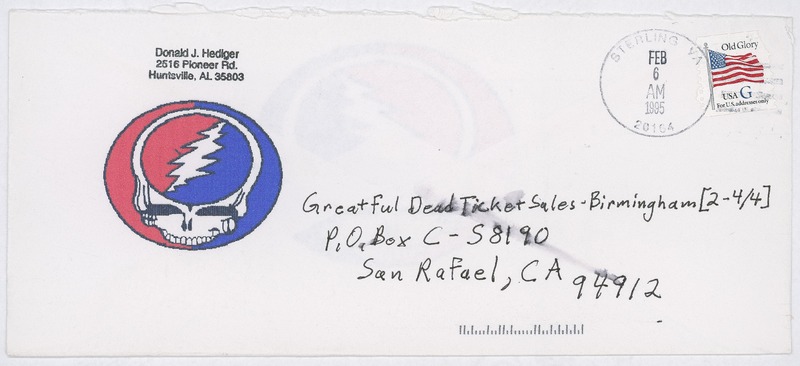 Donald J. Hediger
2516 Pioneer Rd.
Huntsville, AL 35803
STERLING VA
FEB
6
AM
1995
20164
Old Glory
USA G
For U.S. addresses only
Greatful Dead Ticket Sales - Birmingham [2-4/4]
P.O. Box C - S8190
San Rafael, CA
94912